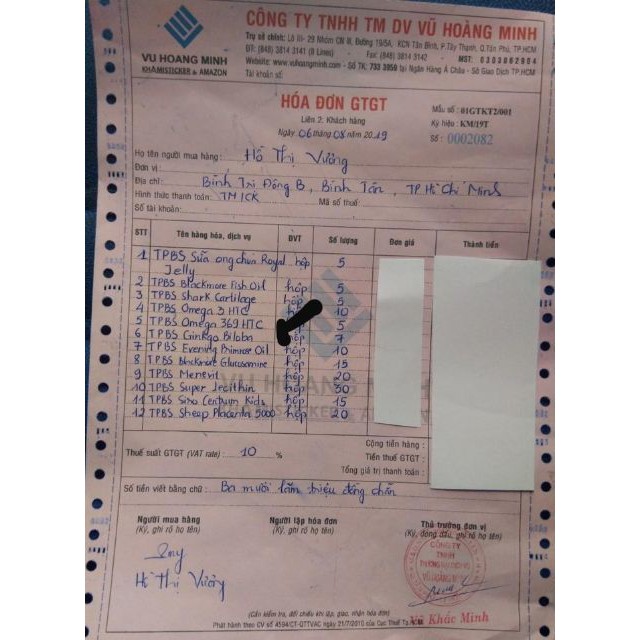 VU HOANG MINH
KHAMISTICKER & AMAZON
CÔNG TY TNHH TM DV VŨ HOÀNG MINH
Trụ sở chính: Lô III- 29 Nhóm CN III, Đường 19/5A, - KCN Tân Bình, P.Tây Thạnh, Q.Tân Phú, TP.HCM
ĐT: (848) 3814 3141 (8 Lines) - Fax: (848) 3814 3142 - MST: 0303862904
Website: www.vuhoangminh.com - Số TK: 733 3959 tại Ngân Hàng Á Châu - Sở Giao Dịch TP.HCM
Tài khoản số:
HÓA ĐƠN GTGT
Liên 2: Khách hàng
Ngày 06 tháng 08 năm 2019
Mẫu số: 01GTKT2/001
Ký hiệu: KM/19T
Số : 0002082
Họ tên người mua hàng: Hồ Thị Vưởng
Đơn vị :
Địa chỉ : Bình Trị Đông B, Bình Tân, TP Hồ Chí Minh
Hình thức thanh toán: TM/CK Mã số thuế:
Số tài khoản:
STT Tên hàng hóa, dịch vụ ĐVT Số lượng Đơn giá Thành tiền
1 TPBS Sữa ong chúa Royal hộp 5
Jelly
2 TPBS Blackmore Fish Oil hộp 5
3 TPBS Shark Cartilage hộp 5
4 TPBS Omega 3 HTC hộp 10
5 TPBS Omega 369 HTC hộp 5
6 TPBS Ginkgo Biloba hộp 7
7 TPBS Evening Primrose Oil hộp 10
8 TPBS Blackmore Glucosamine hộp 15
9 TPBS Menevit hộp 20
10 TPBS Super Lecithin hộp 30
11 TPBS Sino Centrum Kids hộp 15
12 TPBS Sheap Placenta 5000 hộp 20
VU HOANG M
Thuế suất GTGT (VAT rate) : 10 %
Cộng tiền hàng :
Tiền thuế GTGT :
Tổng giá trị thanh toán :
Số tiền viết bằng chữ : Ba mười lăm triệu đồng chẵn
Người mua hàng
(Ký, ghi rõ họ tên)
Người lập hóa đơn
(Ký, ghi rõ họ tên)
Thủ trưởng đơn vị
(Ký, đóng dấu, ghi rõ họ tên)
CÔNG TY
TNHH
Hồ Thị Vưởng
Vũ Khắc Minh
(Cần kiểm tra, đối chiếu khi lập, giao, nhận hóa đơn)
Phát hành theo CV số 4594/CT-QTTVAC ngày 21/7/2010 của Cục Thuế Tp.HCM